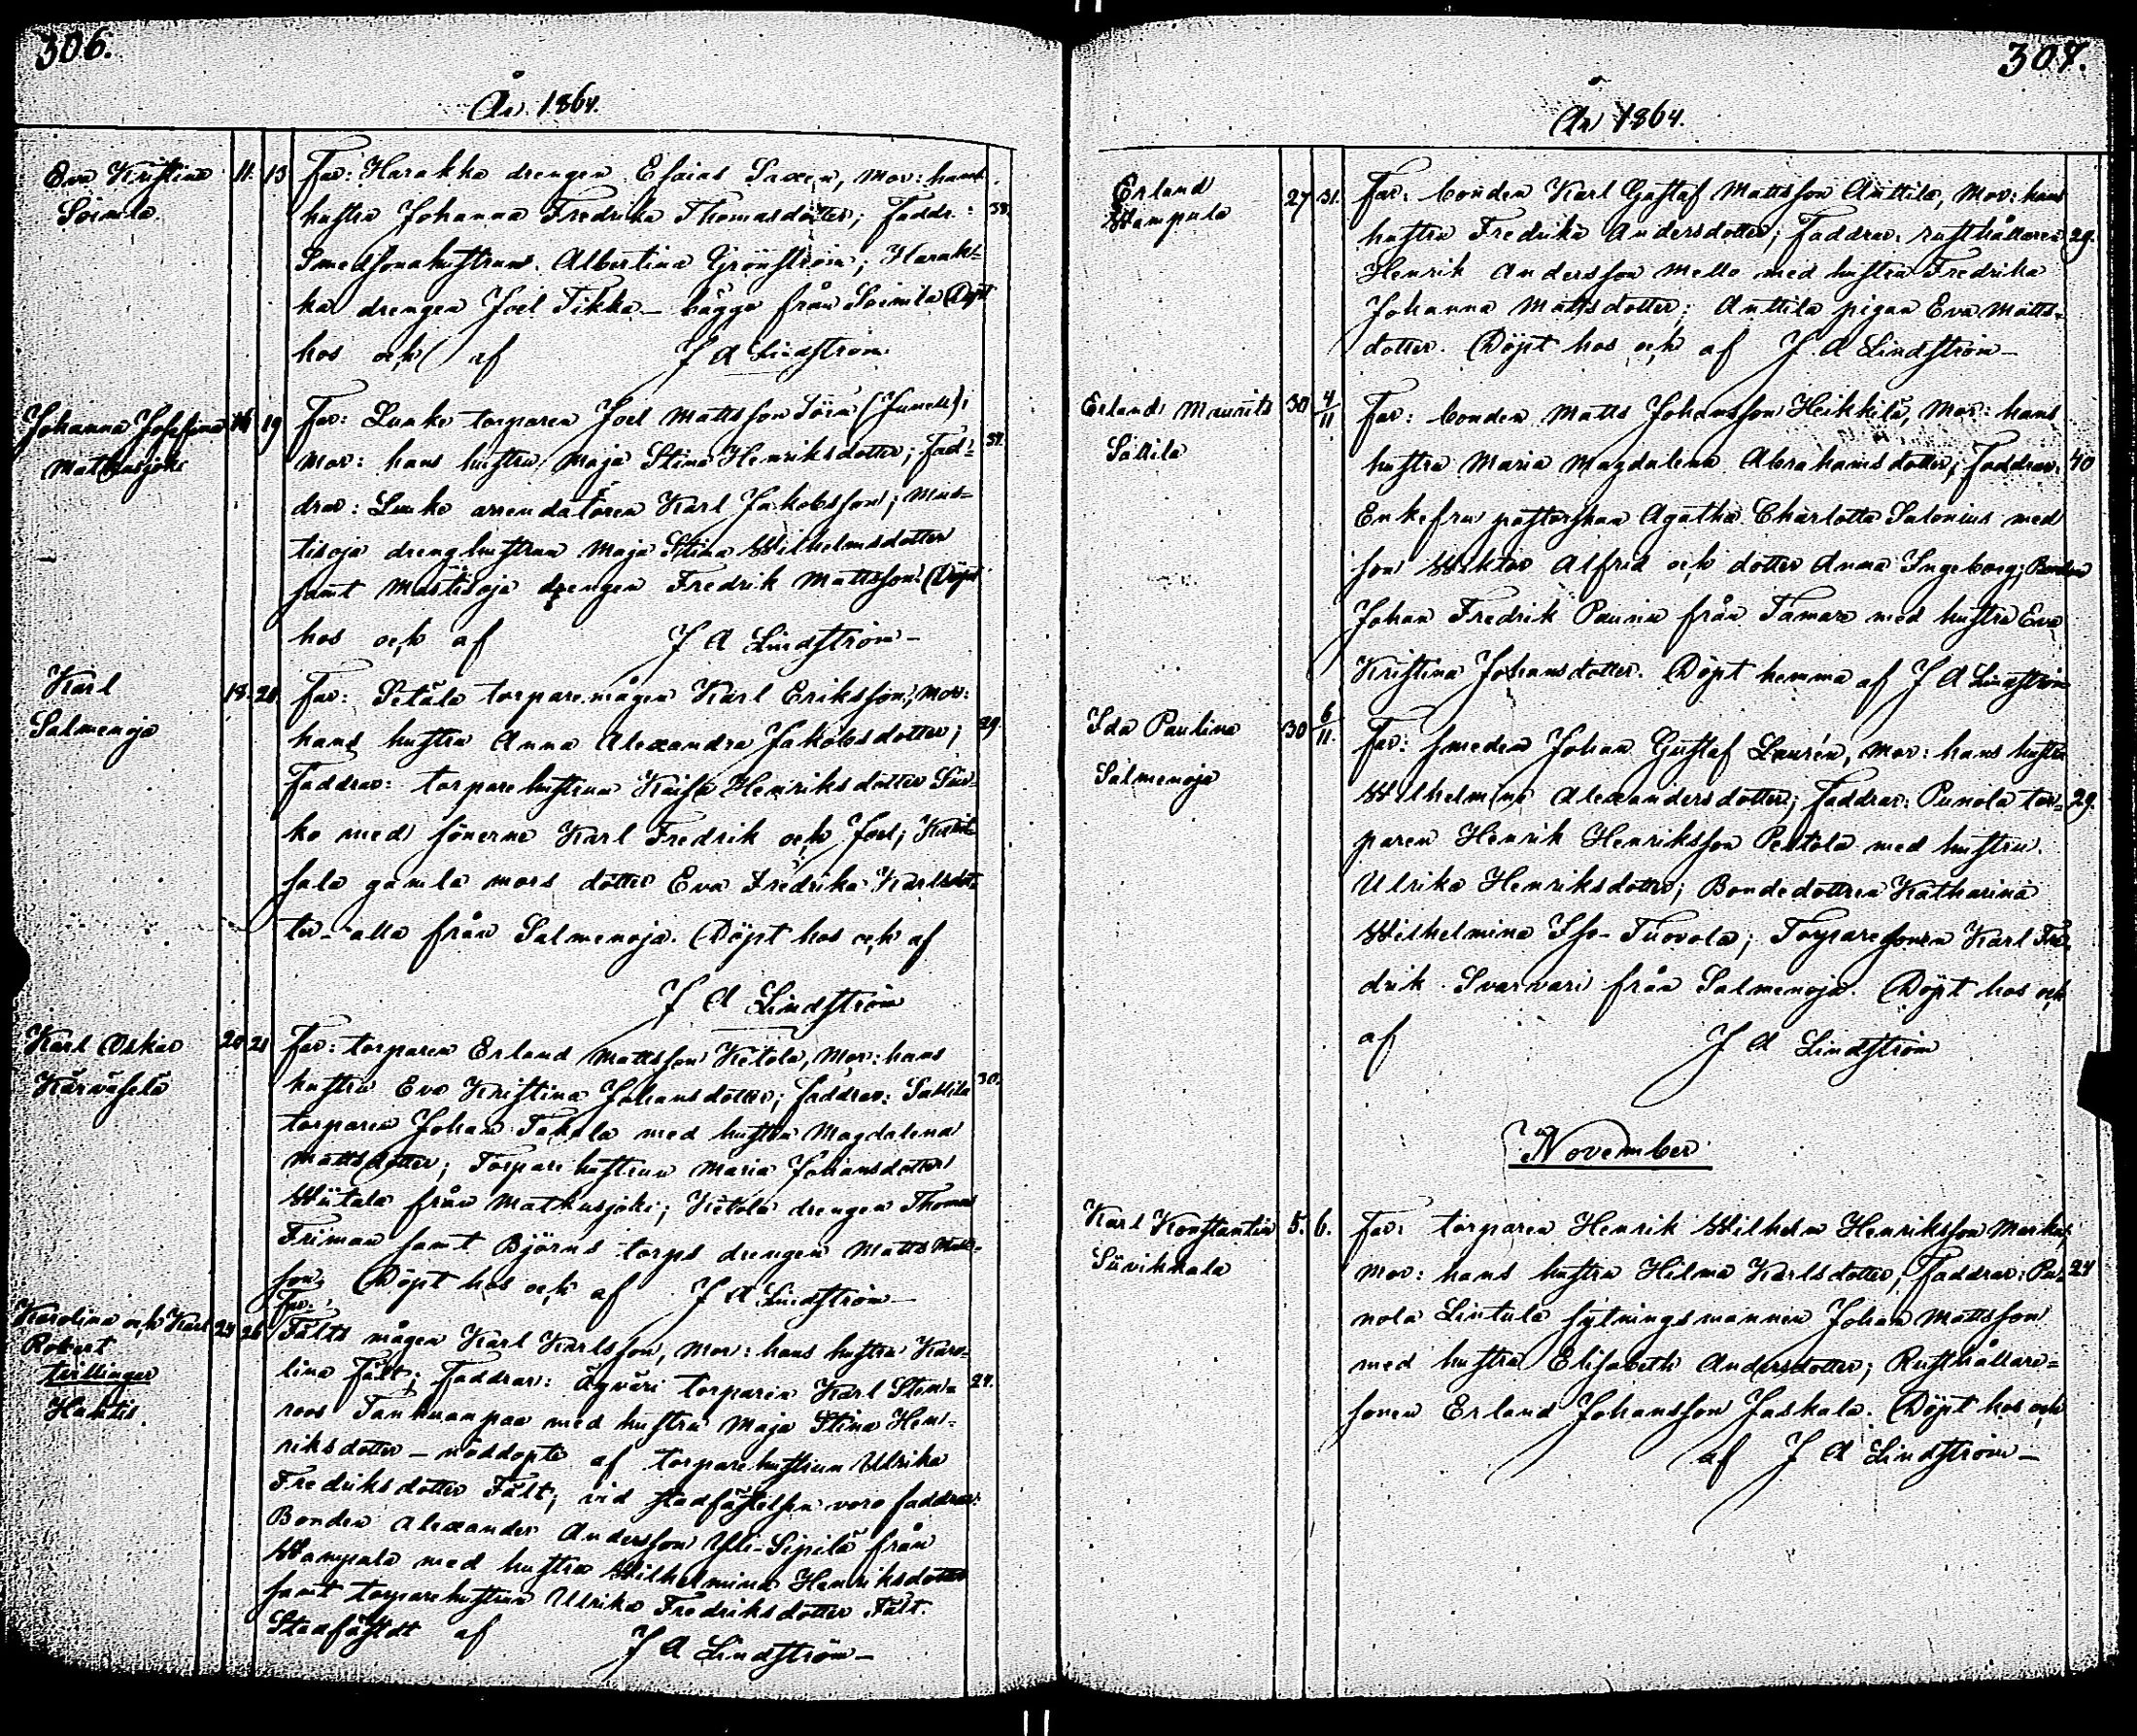 306.
År 1864.
Eva Kristina 11. 13 Far: Harakka drengen Esaias Saxen, Mor: hans
Soinila. hustru Johanna Fredrika Thomasdotter; Faddr.: 38.
Smedsonahustrun Albertina Grönström; Harak-
ka drengen Joel Tikka – bägge från Soinila Döpt
hos och af J A Lindström.
Johanna Josefina 16 19 Far: Lunke torparen Joel Mattsson
Matkusjoki Mor: hans hustru Maja Stina Henriksdotter; Fad-
drar: Lunke arrendatören Karl Jakobsson; Mus-
tioja drenghustrun Maja Stina Wilhelmsdotter
samt Mustioja drengen Fredrik Mattsson. Döpt
hos och af J A Lindström –
Karl 18. 20 Far: Setälä torparemågen Karl Eriksson; Mor:
Salmenoja hans hustru Anna Alexandra Jakobsdotter; 29.
Faddrar: torparehustrun Kaisa Henriksdotter
ko med sönerna Karl Fredrik och Joel;
sala gamla mors dotter Eva Fredrika Karlsdot-
ter – alla från Salmenoja. Döpt hos och af
J A Lindström
Karl Oskar 20 21 Far: torparen Erland Mattsson Ketola, Mor: hans
Kärväselä hustru Eva Kristina Johansdotter; faddrar: Sallila 30.
torparen Johan Takala med hustru Magdalena
Mattsdotter; Torpare hustrun Maria Johansdotter
Wiitala från Matkusjoki; Ketola drengen Thomas
Friman samt Björns torps drengen Matts Matts-
son. Döpt hos och af J A Lindström –
Far:
Karolina och Karl 24 26 Fälts mågen Karl Karlsson, Mor: hans hustru Karo-
Robert lina Fält; Faddrar: Ägräri torparen Karl Sten- 24.
tvillingar roos Tankuanpaa med hustru Maja Stina Hen-
Huhtis. riksdotter – nöddöpte af torparehustrun Ulrika
Fredriksdotter Fält; vid stadfästelsen voro faddrar:
Bonden Alexander Andersson Yli-Sipilä från
Wampula med hustru Wilhelmina Henriksdotter
samt torparehustrun Ulrika Fredriksdotter Fält.
Stadfästdt af J A Lindström –
307.
År 1864.
Erland 27 31. Far: bonden Karl Gustaf Mattsson Anttila, Mor: hans
Wampula hustru Fredrika Andersdotter; Faddrar: rusthållaren 29.
Henrik Andersson Mello med hustru Fredrika
Johanna Mattsdotter; Anttila pigan Eva Matts-
dotter. Döpt hos och af J. A Lindström –
Erland Maurits 30 4/11 Far: bonden Matts Johansson Heikkilä, Mor: hans
Sallila hustru Maria Magdalena Abrahamsdotter; Faddrar: 40
Enkefru pastorskan Agatha Charlotta Salonius med
son Wiktor Alfrid och dotter Anna Ingeborg; Bonden
Johan Fredrik Paunu från Tamare med hustru Eva
Kristina Johansdotter. Döpt hemma af J A Lindström
Ida Paulina 30 6/11. Far: smeden Johan Gustaf Laurén, Mor: hans hustru
Salmenoja Wilhelmina Alexandersdotter; Faddrar: Punola tor- 29.
paren Henrik Henriksson Peltola med hustru
Ulrika Henriksdotter; Bondedottren Katharina
Wilhelmina Iso-Tuovola; Torparesonen Karl Fre-
drik Svarvari från Salmenoja. Döpt hos och
af J A Lindström
November
Karl Konstantin 5. 6. Far: torparen Henrik Wilhelm Henriksson Markus,
Suvikkala Mor: hans hustru Hilma Karlsdotter; Faddrar: Pu- 24
nola Lintula sytningsmannen Johan Mattsson
med hustru Elisabeth Andersdotter; Rusthållare-
sonen Erland Johansson Jaskala. Döpt hos och
af J A Lindström –